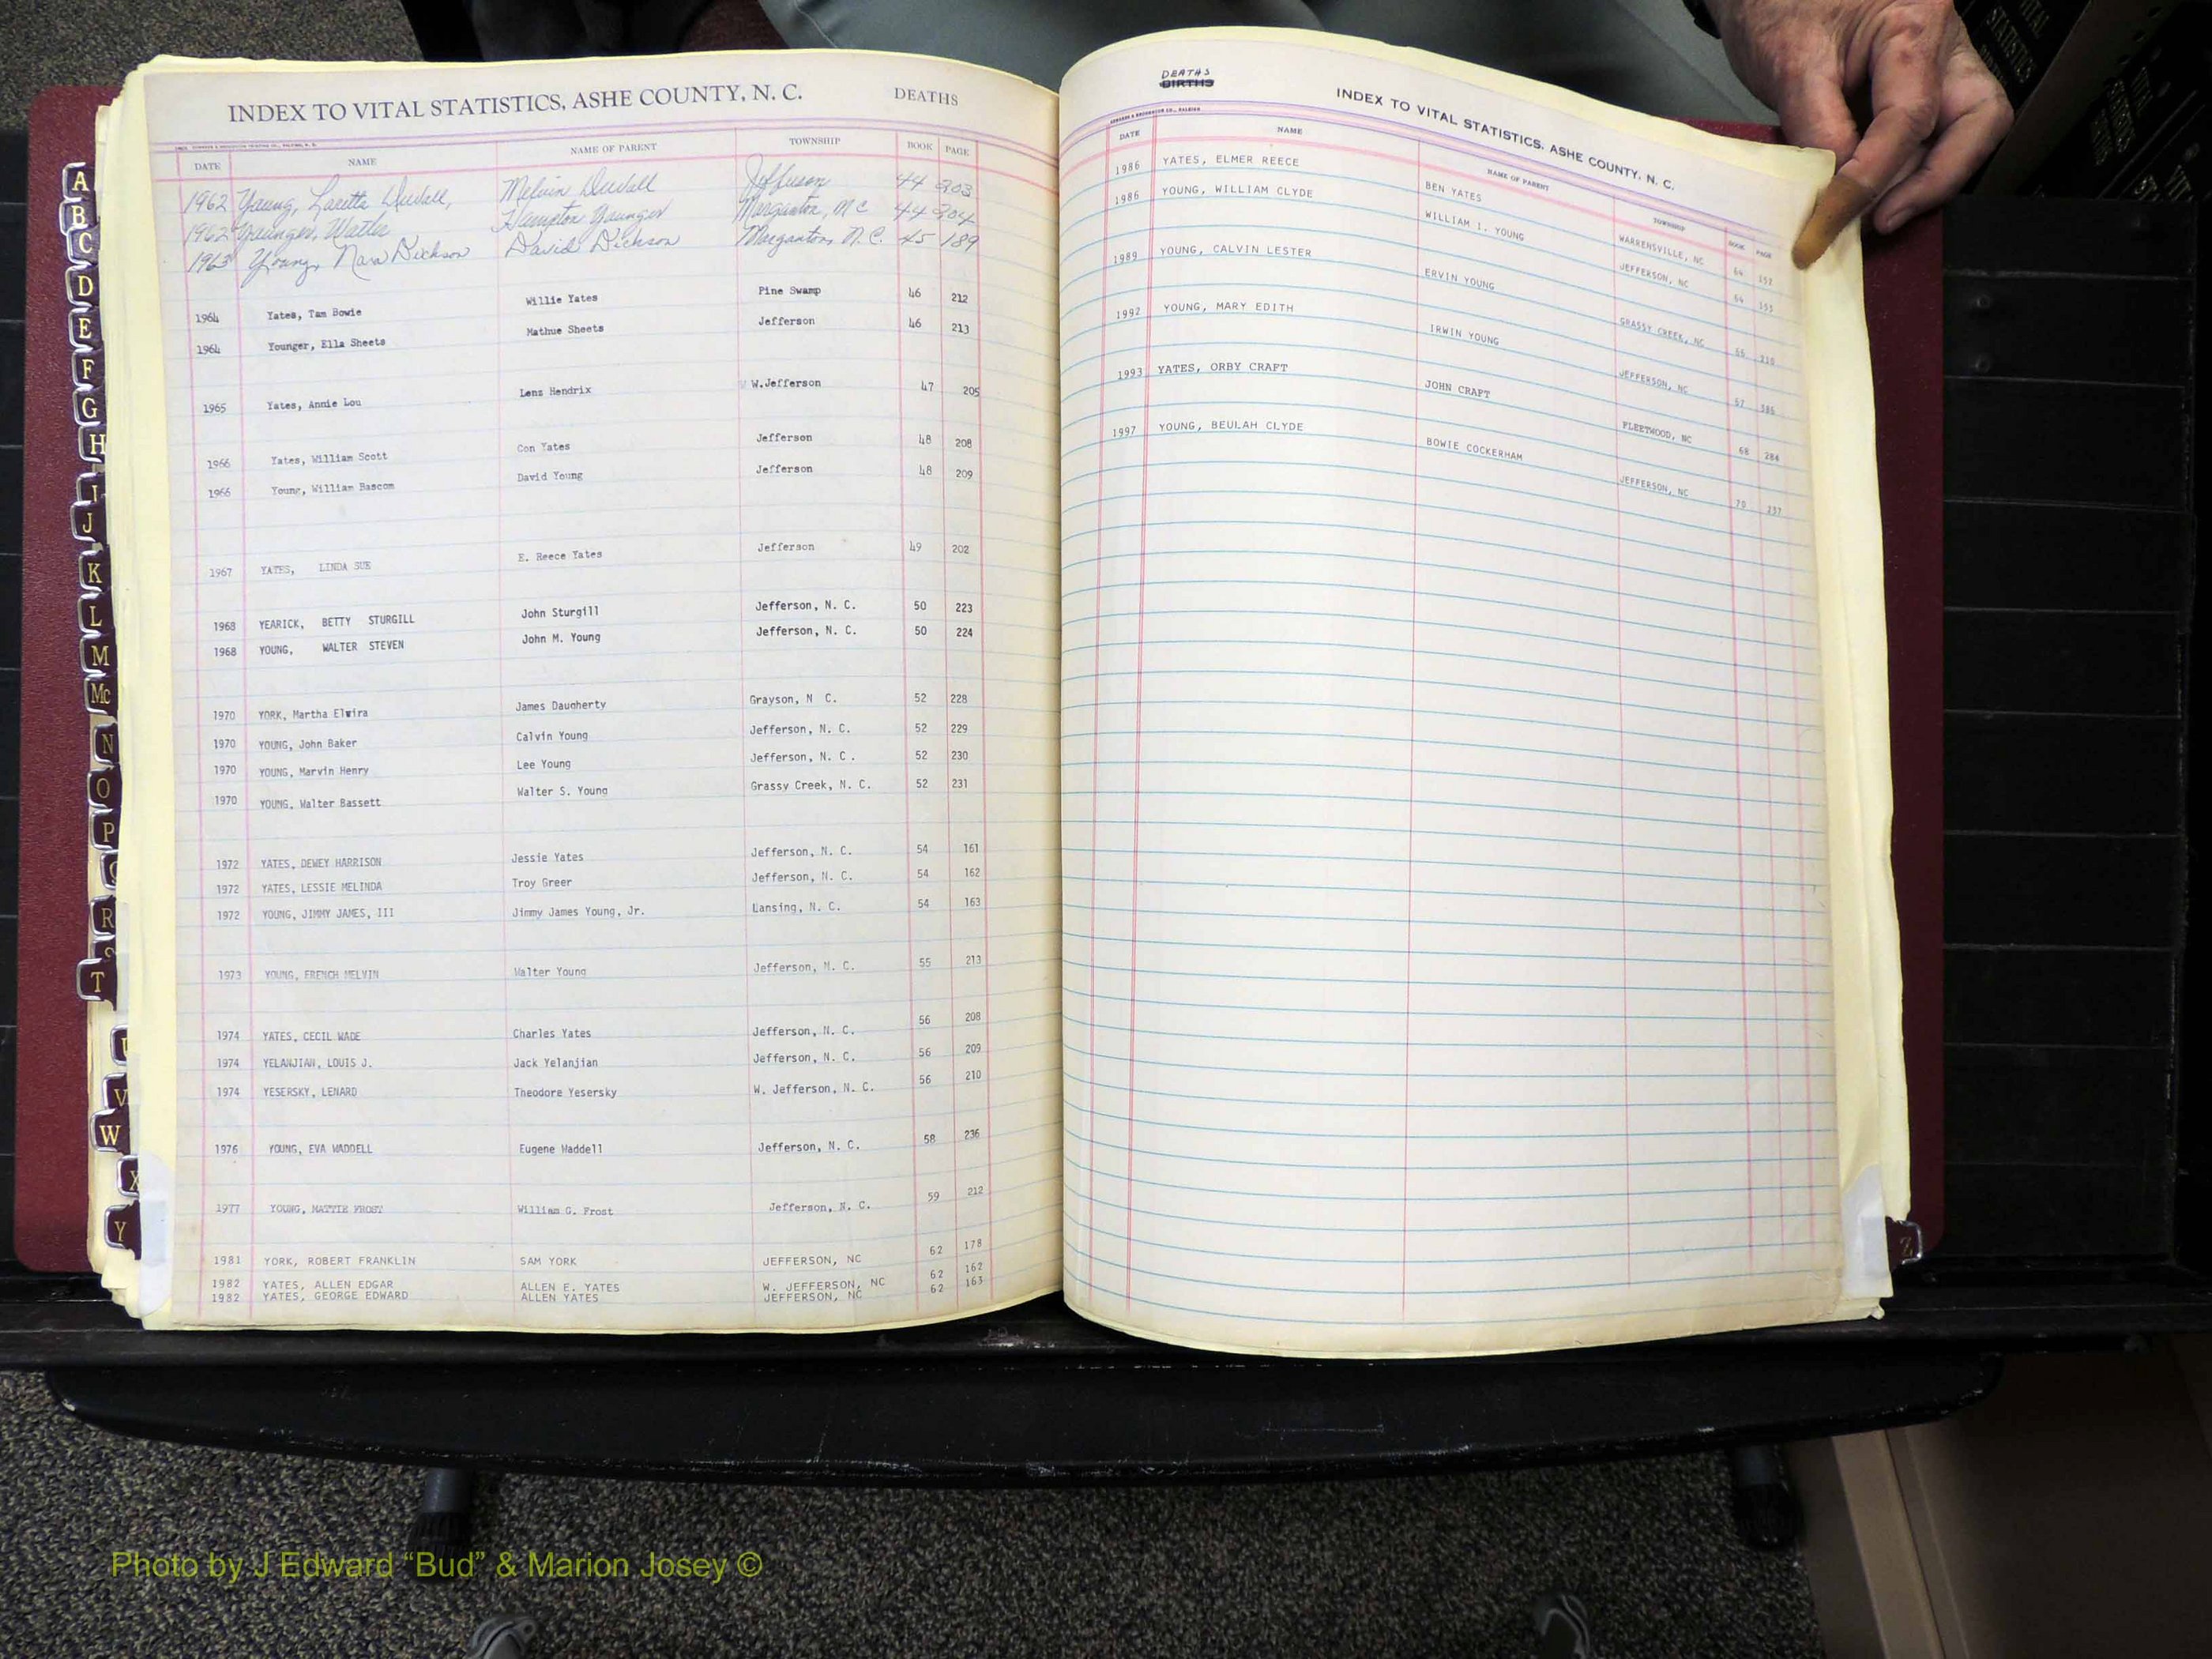 INDEX TO VITAL STATISTICS, ASHE COUNTY, N. C. DEATHS
DATE NAME NAME OF PARENT TOWNSHIP BOOK PAGE
1962 Young, Loretta Duvall, Melvin Duvall Jefferson 44 203
1962 Younger, Walter Hampton Younger Morganton, N C 44 204
1963 Young, Nora Dickson David Dickson Morganton, N. C. 45 189
1964 Yates, Tam Bowie Willie Yates Pine Swamp 46 212
1964 Younger, Ella Sheets Mathue Sheets Jefferson 46 213
1965 Yates, Annie Lou Lenz Hendrix W.Jefferson 47 205
1966 Yates, William Scott Con Yates Jefferson 48 208
1966 Young, William Bascom David Young Jefferson 48 209
1967 YATES, LINDA SUE E. Reece Yates Jefferson 49 202
1968 YEARICK, BETTY STURGILL John Sturgill Jefferson, N. C. 50 223
1968 YOUNG, WALTER STEVEN John M. Young Jefferson, N. C. 50 224
1970 YORK, Martha Elvira James Daugherty Grayson, N C. 52 228
1970 YOUNG, John Baker Calvin Young Jefferson, N. C. 52 229
1970 YOUNG, Marvin Henry Lee Young Jefferson, N. C. 52 230
1970 YOUNG, Walter Bassett Walter S. Young Grassy Creek, N. C. 52 231
1972 YATES, DEWEY HARRISON Jessie Yates Jefferson, N. C. 54 161
1972 YATES, LESSIE MELINDA Troy Greer Jefferson, N. C. 54 162
1972 YOUNG, JIMMY JAMES, III Jimmy James Young, Jr. Lansing, N. C. 54 163
1973 YOUNG, FRENCH MELVIN Walter Young Jefferson, N. C. 55 213
1974 YATES, CECIL WADE Charles Yates Jefferson, N. C. 56 208
1974 YELANJIAN, LOUIS J. Jack Yelanjian Jefferson, N. C. 56 209
1974 YESERSKY, LENARD Theodore Yesersky W. Jefferson, N. C. 56 210
1976 YOUNG, EVA WADDELL Eugene Waddell Jefferson, N. C. 58 236
1977 YOUNG, MATTIE FROST William G. Frost Jefferson, N. C. 59 212
1981 YORK, ROBERT FRANKLIN SAM YORK JEFFERSON, NC 62 178
1982 YATES, ALLEN EDGAR ALLEN E. YATES W. JEFFERSON, NC 62 162
1982 YATES, GEORGE EDWARD ALLEN YATES JEFFERSON, NC 62 163
DEATHS
BIRTHS
INDEX TO VITAL STATISTICS, ASHE COUNTY, N. C.
DATE NAME NAME OF PARENT TOWNSHIP BOOK PAGE
1986 YATES, ELMER REECE BEN YATES WARRENSVILLE, NC 64 152
1986 YOUNG, WILLIAM CLYDE WILLIAM I. YOUNG JEFFERSON, NC 64 153
1989 YOUNG, CALVIN LESTER ERVIN YOUNG GRASSY CREEK, NC
1992 YOUNG, MARY EDITH IRWIN YOUNG JEFFERSON, NC
1993 YATES, ORBY CRAFT JOHN CRAFT FLEETWOOD, NC 68 284
1997 YOUNG, BEULAH CLYDE BOWIE COCKERHAM JEFFERSON, NC 70
A
B
C
D
E
F
G
H
I
J
K
L
M
Mc
N
O
P
R
S
T
V
W
X
Y
Z
VITAL STATISTICS
Photo by J Edward “Bud” & Marion Josey ©